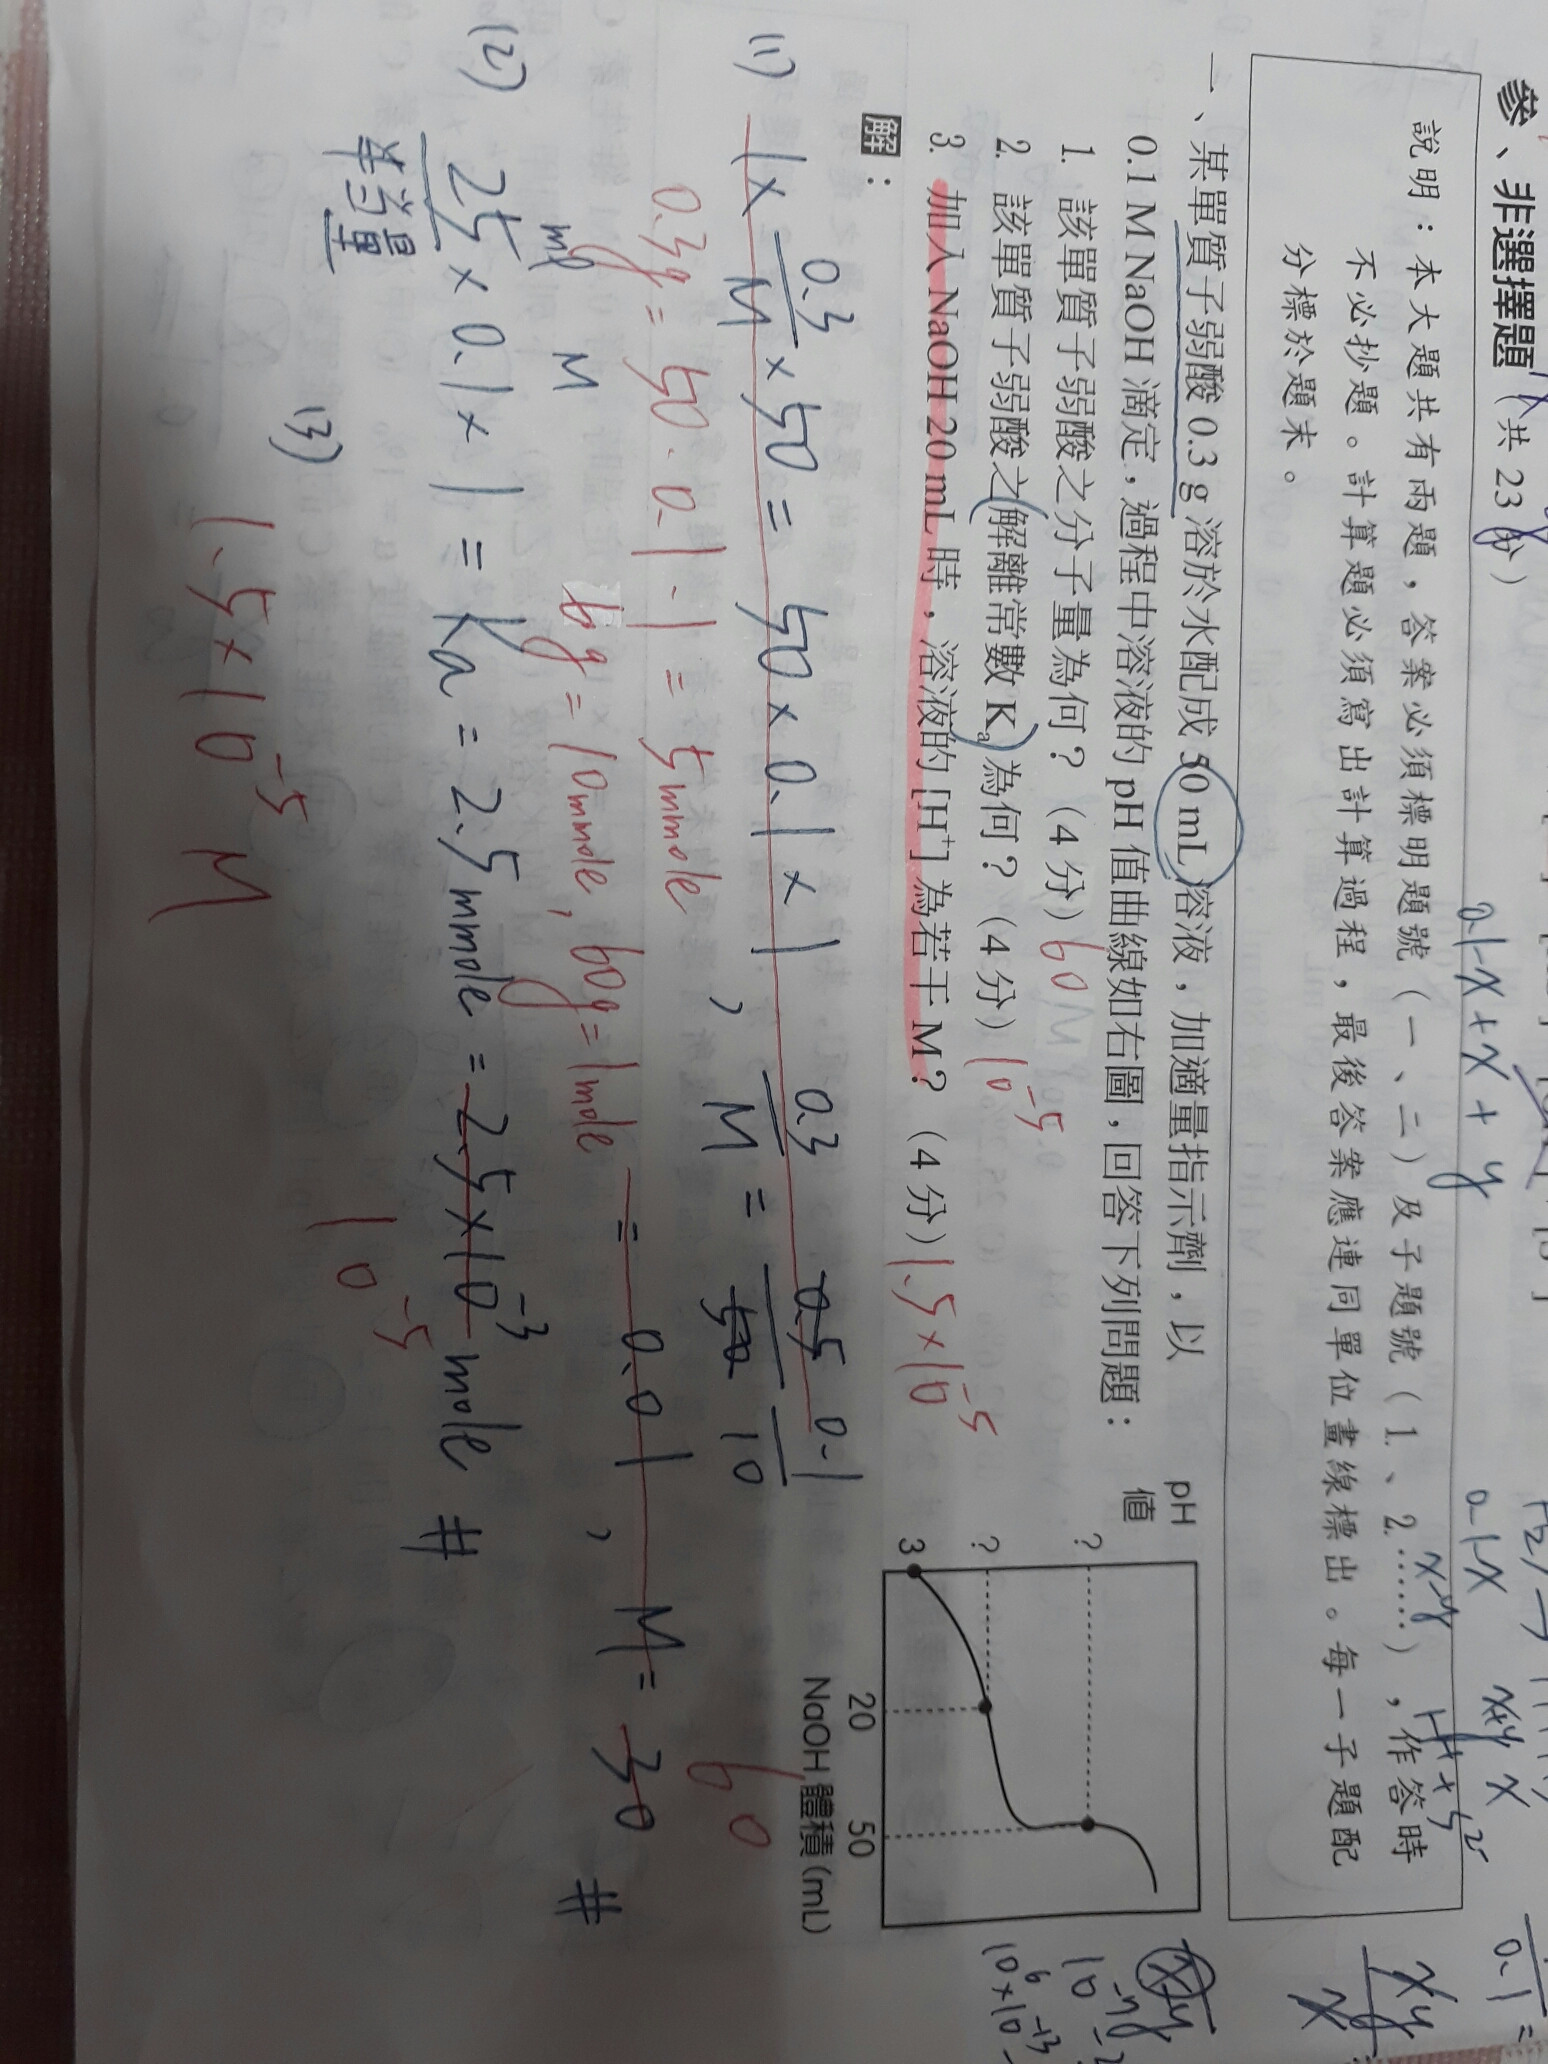 參、非選擇題(共 23 分)
說明：本大題共有兩題，答案必須標明題號（一、二）及子題號（1.、2.……），作答時
不必抄題。計算題必須寫出計算過程，最後答案應連同單位畫線標出。每一子題配
分標於題末。
一、某單質子弱酸 0.3 g 溶於水配成 50 mL 溶液，加適量指示劑，以
0.1 M NaOH 滴定，過程中溶液的 pH 值曲線如右圖，回答下列問題：
1. 該單質子弱酸之分子量為何？（4 分）60
2. 該單質子弱酸之解離常數 Ka 為何？（4 分）10⁻⁵
3. 加入 NaOH 20 mL 時，溶液的 [H⁺] 為若干 M？（4 分）1.5×10⁻⁵
pH
值
?
?
3
20
50
NaOH 體積 (mL)
解：
(1) 1× 0.3/M ×50 = 50×0.1×1 , 0.3/M = 0.5/50 0.1/10
= 0.01 , M = 30 #
60
0.3g = 50·0.1·1 = 5mmole
6g = 10mmole, 60g = 1mole
(2) 25 ml × 0.1 M × 1 = Ka = 2.5 mmole = 2.5×10⁻³ mole #
半當量
10⁻⁵
(3)
1.5×10⁻⁵ M
0.1-x+x+y
0.1-x